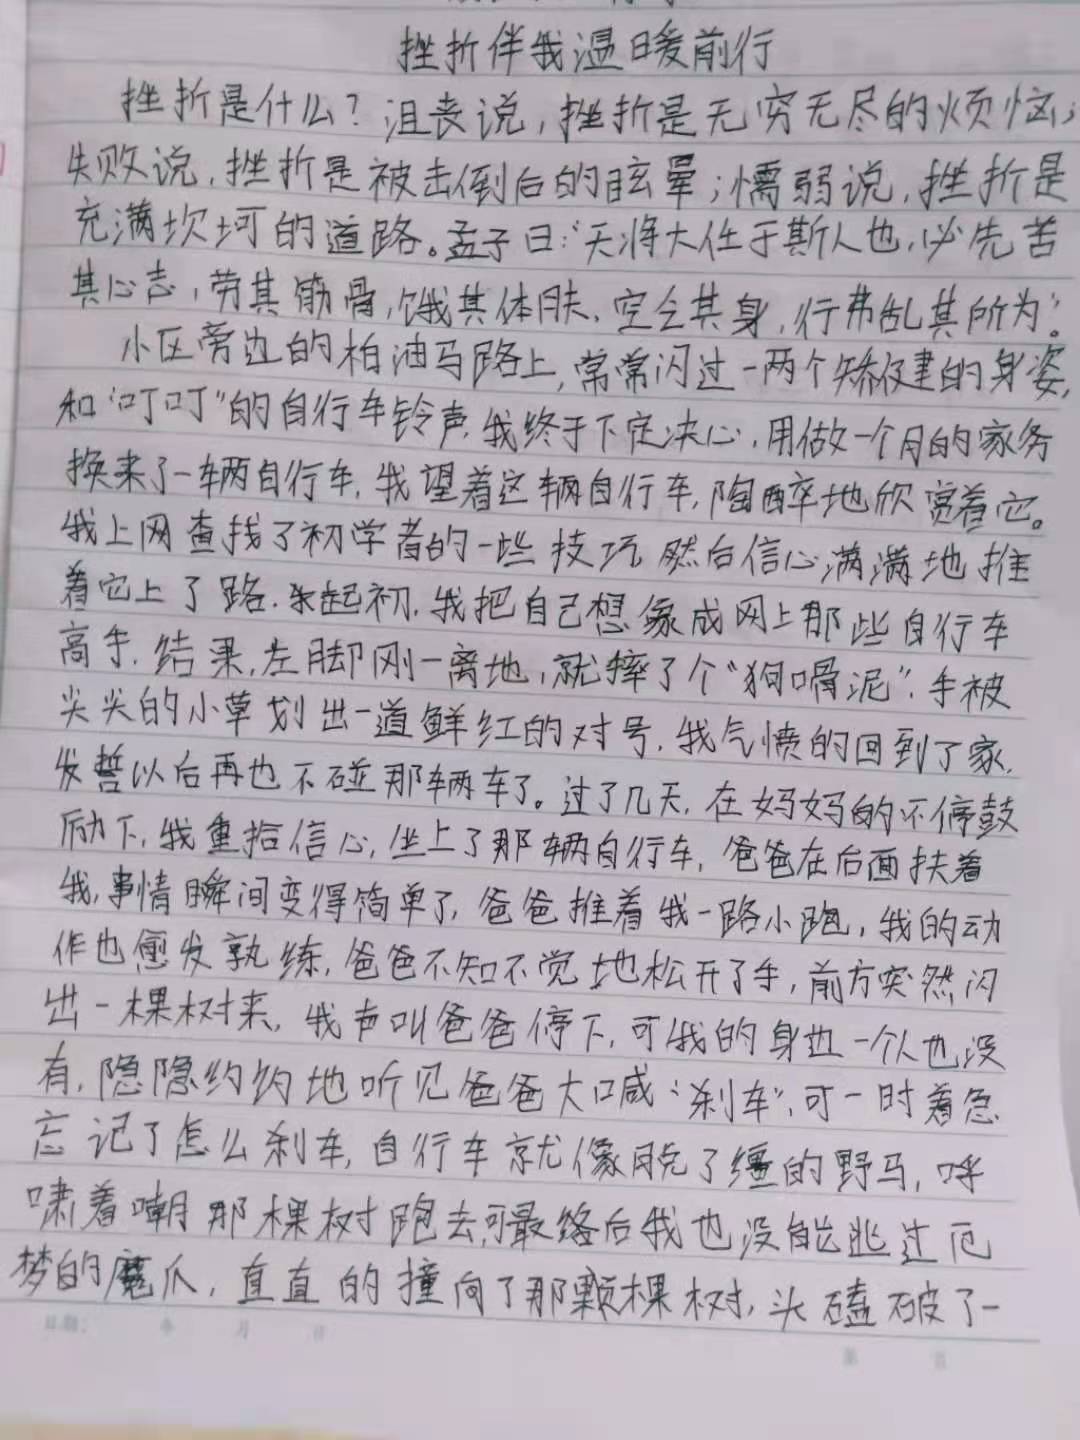 挫折伴我温暖前行
挫折是什么?沮丧说,挫折是无穷无尽的烦恼;
失败说,挫折是被击倒后的眩晕;懦弱说,挫折是
充满坎坷的道路。孟子曰:“天将大任于斯人也,必先苦
其心志,劳其筋骨,饿其体肤,空乏其身,行弗乱其所为”。
小区旁边的柏油马路上,常常闪过一两个矫健的身姿,
和“叮叮”的自行车铃声,我终于下定决心,用做一个月的家务
换来了一辆自行车,我望着这辆自行车,陶醉地欣赏着它。
我上网查找了初学者的一些技巧,然后信心满满地推
着它上了路.起初,我把自己想象成网上那些自行车
高手,结果,左脚刚一离地,就摔了个“狗啃泥”,手被
尖尖的小草划出一道鲜红的对号,我气愤的回到了家,
发誓以后再也不碰那辆车了。过了几天,在妈妈的不停鼓
励下,我重拾信心,坐上了那辆自行车,爸爸在后面扶着
我,事情瞬间变得简单了,爸爸推着我一路小跑,我的动
作也愈发孰练,爸爸不知不觉地松开了手,前方突然闪
出一棵树来,我声叫爸爸停下,可我的身边一个人也没
有,隐隐约约地听见爸爸大喊“刹车”,可一时着急
忘记了怎么刹车,自行车就像脱了缰的野马,呼
啸着嘲那棵树跑去,可最终后我也没能逃过厄
梦的魔爪,直直的撞向了那颗棵树,头磕破了一
日期: 年 月 日
第 页